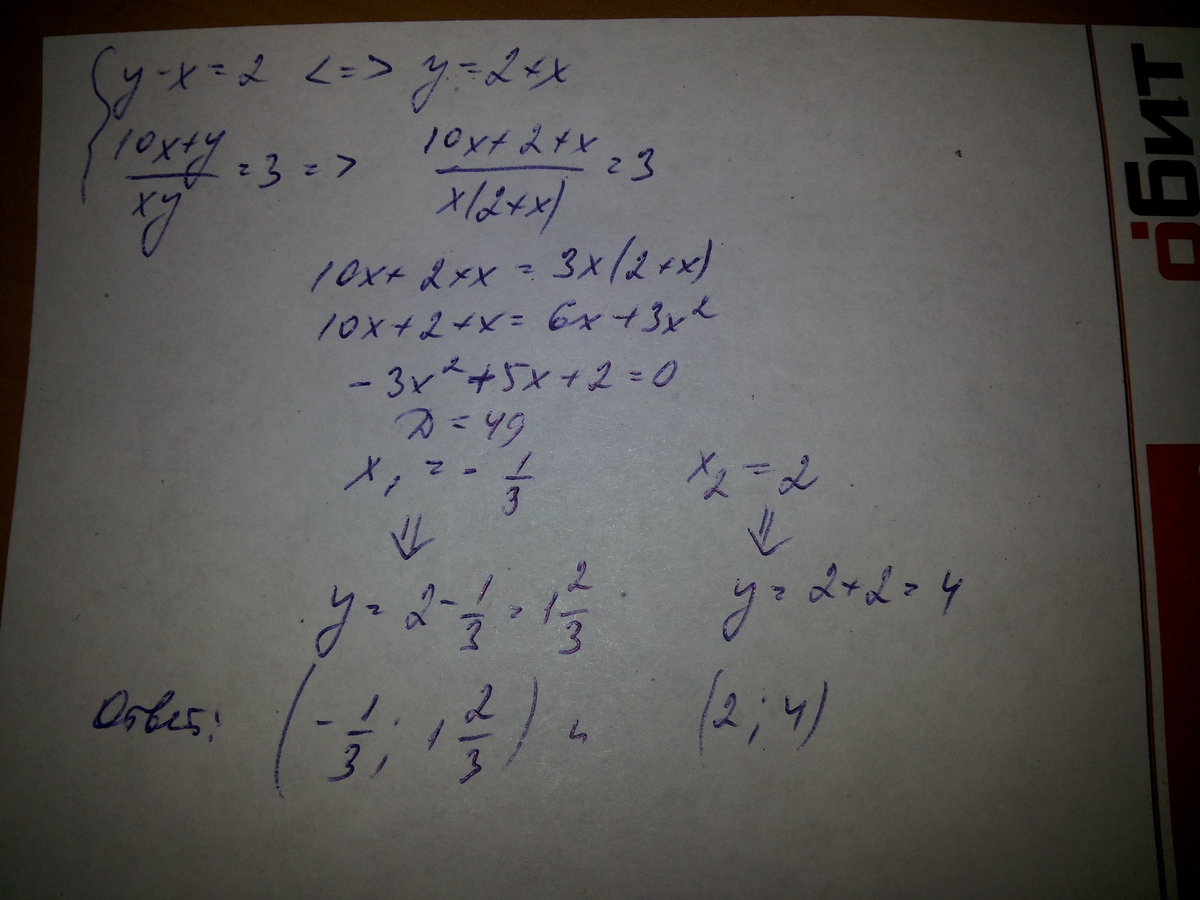 { y - x = 2 <=> y = 2 + x
(10x + y)/(xy) = 3 => (10x + 2 + x)/(x(2 + x)) = 3
10x + 2 + x = 3x(2 + x)
10x + 2 + x = 6x + 3x²
-3x² + 5x + 2 = 0
D = 49
x₁ = - 1/3    x₂ = 2
⇓    ⇓
y = 2 - 1/3 = 1 2/3    y = 2 + 2 = 4
Ответ: (- 1/3; 1 2/3) и (2; 4)
обит